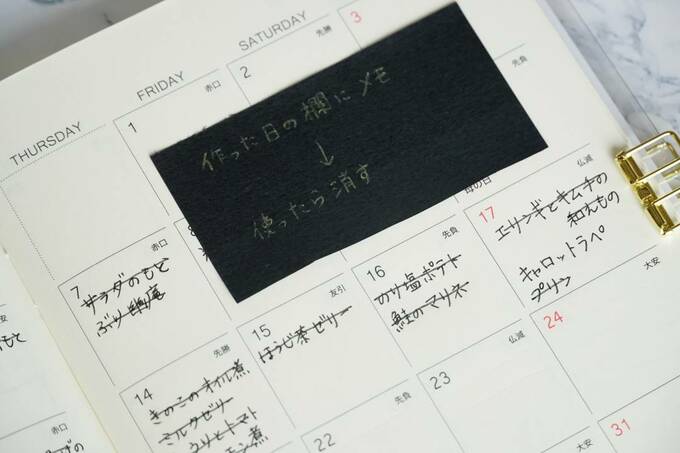 THURSDAY
FRIDAY
SATURDAY
1
赤口
2
先勝
3
先負
作った日の欄にメモ
↓
使ったら消す
母の日
仏滅
7
赤口
サラダのもと
ぶり幽庵
15
友引
ほうじ茶ゼリー
16
先負
のり塩ポテト
鮭のマリネ
17
エリンギとキムチの
和えもの
キャロットラペ
プリン
14
先勝
きのこのオイル煮
ミルクゼリー
ウリとトマト
モン煮
22
先負
23
仏滅
24
大安
31
大安